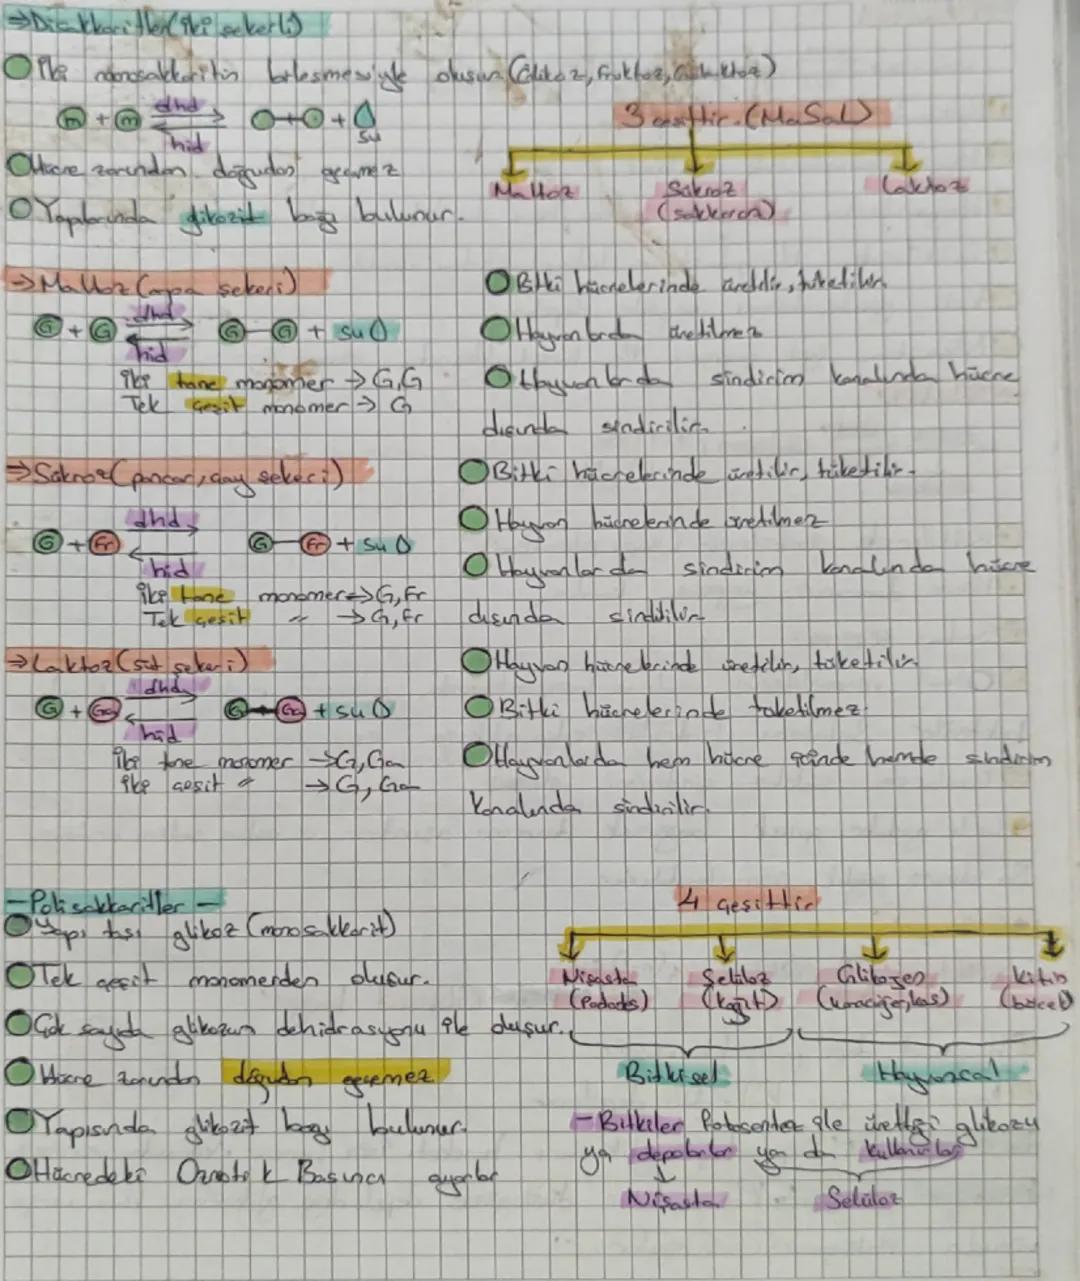 ⇒Disakkaritler(iki şekerli)
İki monosakkaritin birleşmesiyle oluşur(Glikoz, Fruktoz, Galaktoz)
m + m dhd hid + su
Hücre zarından doğrudan geçemez
Yapılarında glikozit bağı bulunur.
3 çeşittir.(MaSaL)
Maltoz Sakroz Laktoz
(sakkaroz)
→Maltoz(arpa şekeri)
G + G dhd hid G G + su
İki tane monomer → G,G
Tek çeşit monomer → G
Bitki hücrelerinde üretilir, tüketilir
Hayvanlarda üretilmez
Hayvanlarda sindirim kanalında hücre
dışında sindirilir.
⇒Sakroz(pancar, çay şekeri)
G + Fr dhd hid G Fr + su
İki tane monomer → G,Fr
Tek çeşit " → G,Fr
Bitki hücrelerinde üretilir, tüketilir.
Hayvan hücrelerinde üretilmez
Hayvanlarda sindirim kanalında hücre
dışında sindirilir
⇒Laktoz(süt şekeri)
G + Ga dhd hid G Ga + su
İki tane monomer → G, Ga
İki çeşit " → G, Ga
Hayvan hücrelerinde üretilir, tüketilir
Bitki hücrelerinde tüketilmez.
Hayvanlarda hem hücre içinde hemde sindirim
kanalında sindirilir.
-Polisakkaritler-
Yapı taşı glikoz (monosakkarit)
Tek çeşit monomerden oluşur.
Çok sayıda glikozun dehidrasyonu ile oluşur.
Hücre zarından doğrudan geçemez
Yapısında glikozit bağı bulunur.
Hücredeki Ozmotik Basıncı ayarlar
4 çeşittir
Nişasta Selüloz Glikojen kitin
(Patates) (kağıt) (karaciğer, kas) (böcek)
Bitkisel Hayvansal
- Bitkiler fotosentez ile ürettiği glikozu
ya depolarlar ya da kullanırlar
Nişasta Selüloz